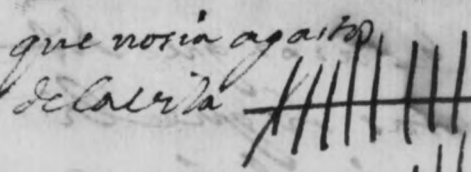 que nosia agasto
de la erila